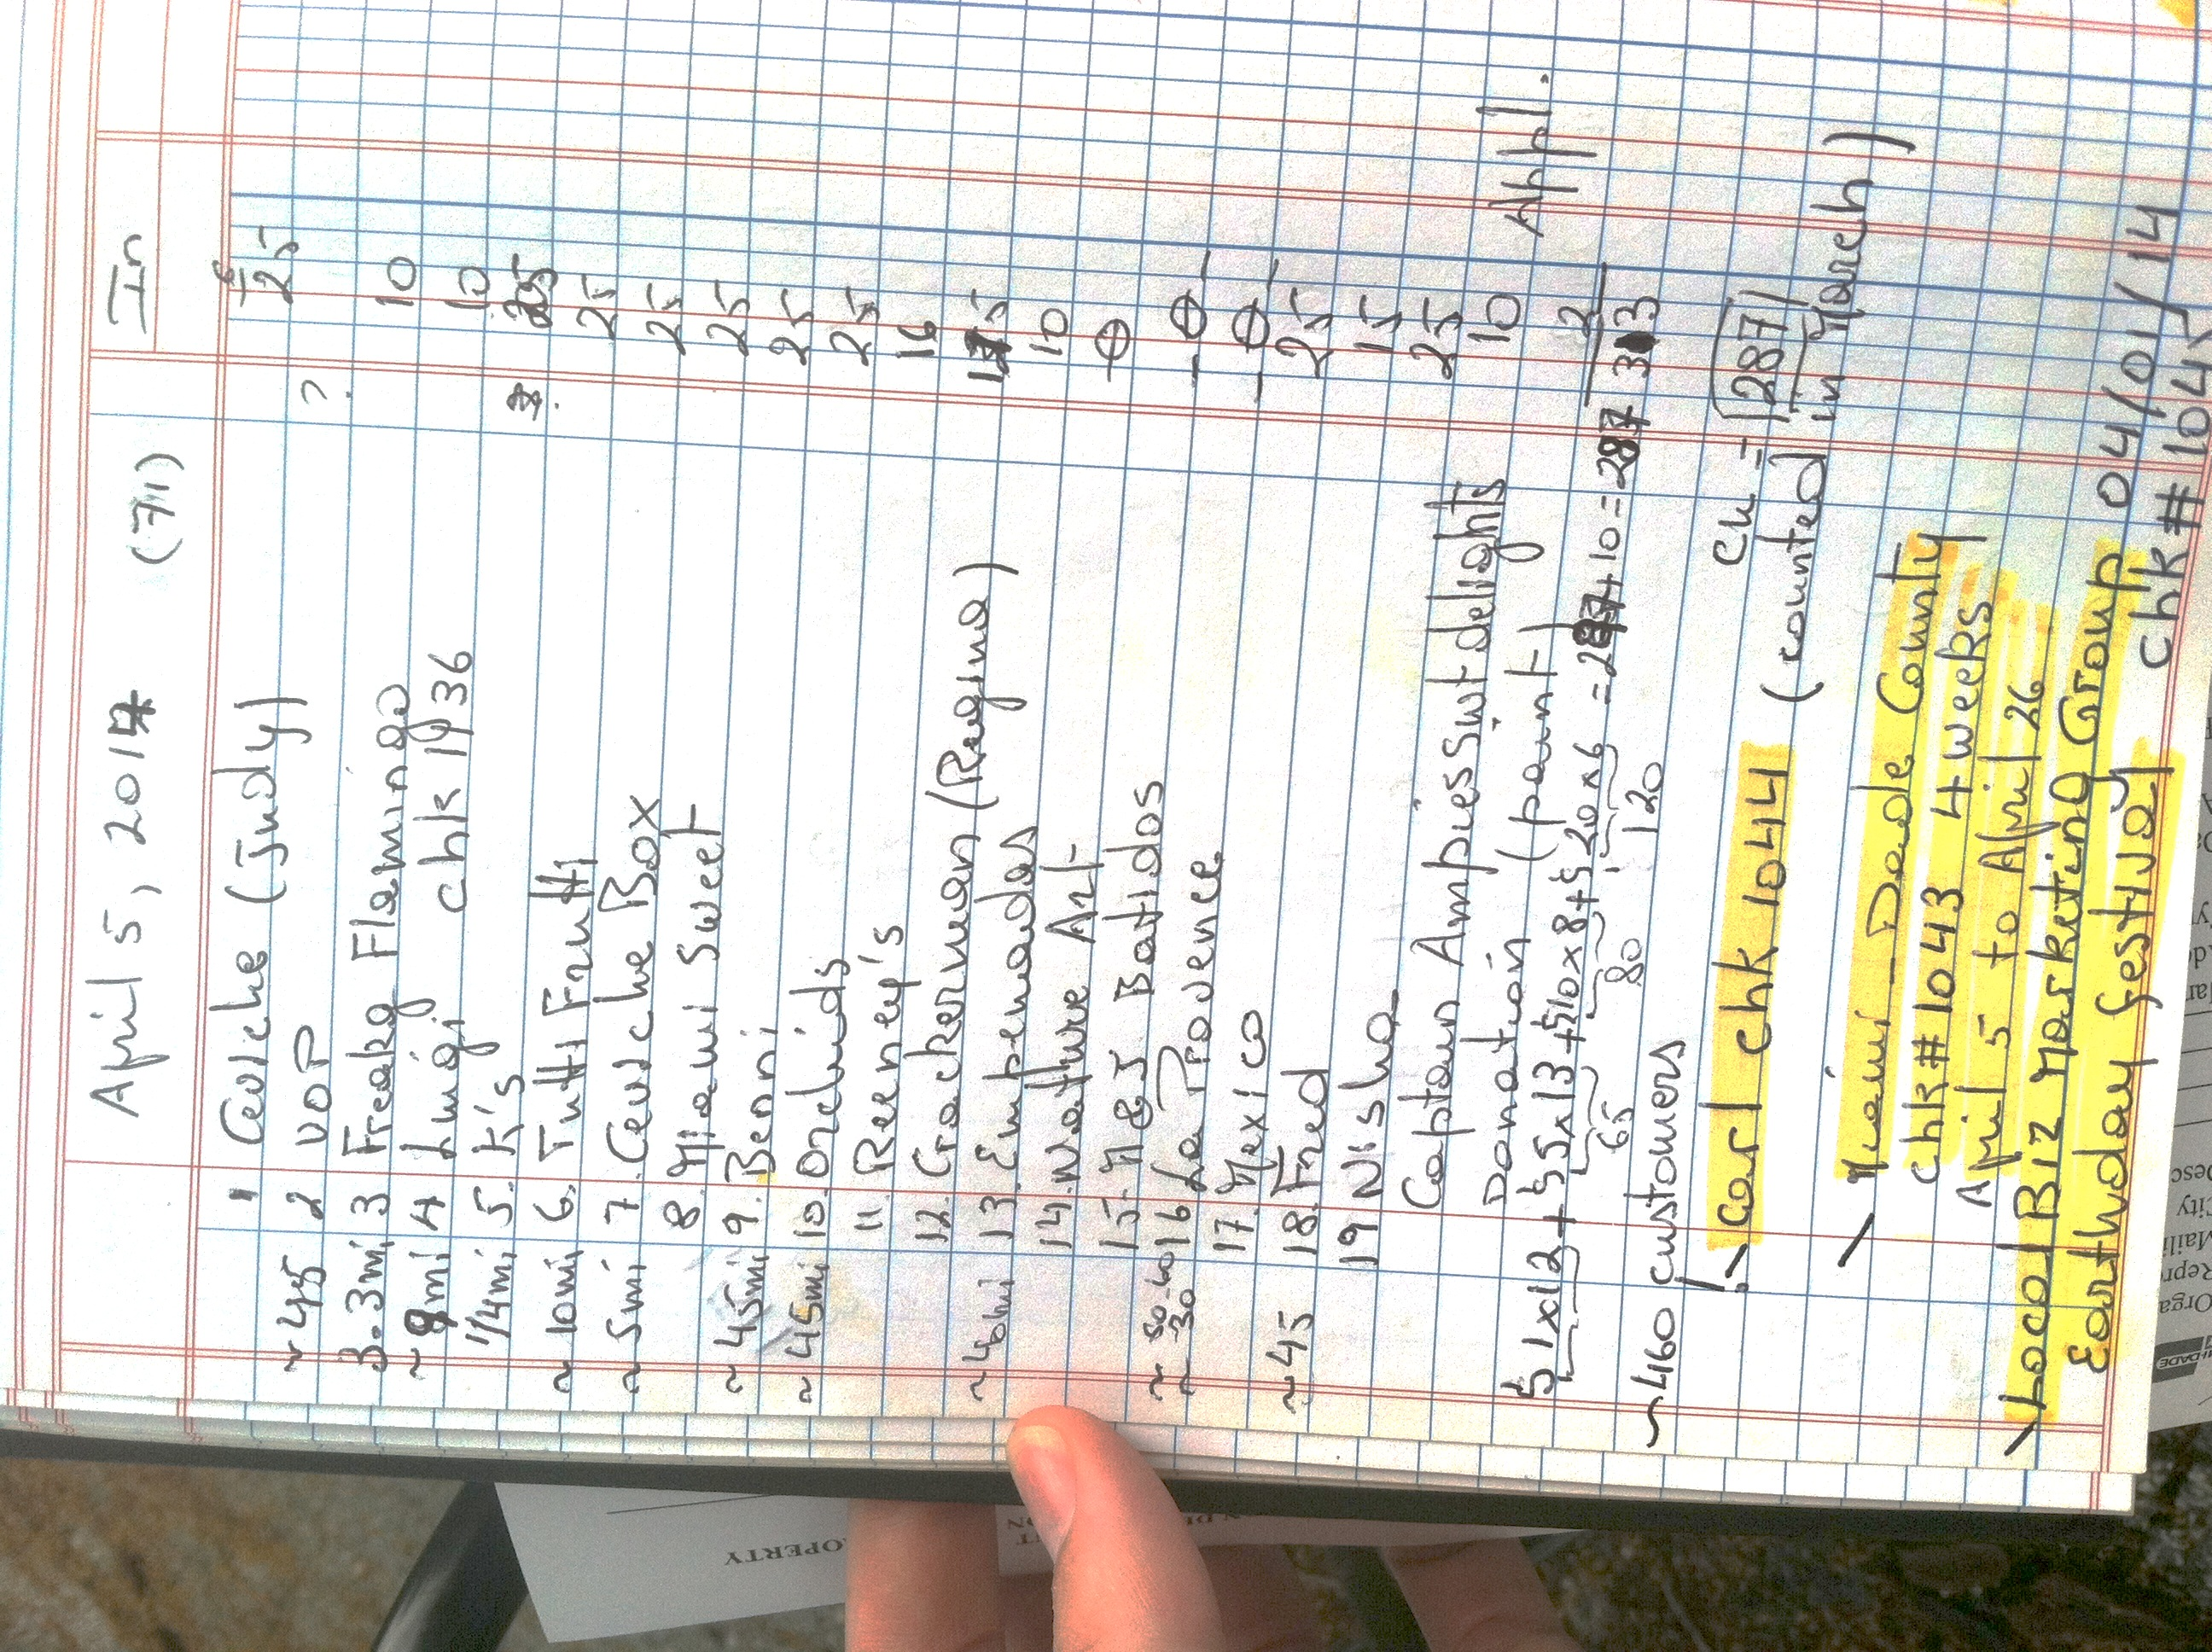 April 5, 2014 (71) In
1 Ceviche (Judy) 6
~45 2 VOP ? 25
3.3mi 3 Freaky Flamingo 10
~8mi 4 Luigi chk 1936 10
1/4mi 5. K's 25
~10mi 6. Tutti Frutti 25
~5mi 7. Ceviche Box 25
8. Miami Sweet 25
~45mi 9. Benni 25
~45mi 10. Orchids 25
11. Reeney's 16
12. Crackerman (Regina) 15
~40mi 13. Empenadas 10
14. Nature Art 0
~50-60 15. M&J Batidos -0-
~30 16 La Provence -0-
17. Mexico 25
~45 18. Fred 15
19 Nisha 25
Captain Ampies Swt delights 10 Appl.
Donation (paint) 2
51x12+55x13+510x8+520x6
65 80 120
~460 customers
carl chk 1044 ck = 287
(counted in March)
Miami-Dade County
chk#1043 4 weeks
April 5 to April 26
Local Biz Marketing Group 04/01/14
Earthday festival chk#1045
OPERTY